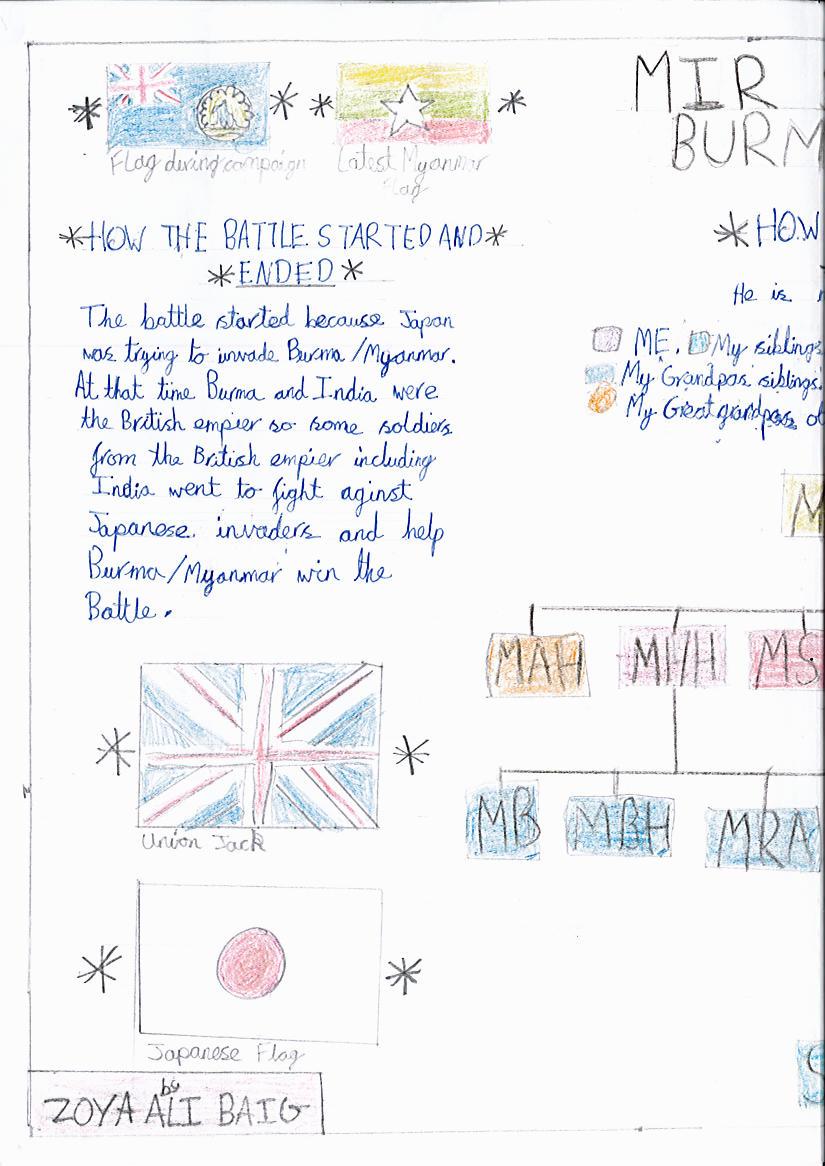 Flag during campaign
Latest Myanmar
Flag
MIR
BURM
*HOW THE BATTLE STARTED AND*
*ENDED*
The battle started because Japan
was trying to invade Burma/Myanmar.
At that time Burma and India were
the British empier so some soldiers
from the British empier including
India went to fight aginst
Japanese. invaders and help
Burma/Myanmar win the
Battle.
Union Jack
Japanese Flag
by
ZOYA ALI BAIG
*HOW
He is
ME, My siblings
My Grandpas siblings.
My Great grandpas
M
MAH MHH MS
MB MBH MRA
S